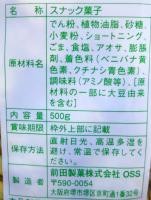 名　称 スナック菓子
原材料名 でん粉、植物油脂、砂糖、
小麦粉、ショートニング、
ごま、食塩、アオサ、膨脹
剤、着色料(ベニバナ黄
色素、クチナシ青色素)、
調味料(アミノ酸等)、[原
材料の一部に大豆由来
を含む]
内容量 500g
賞味期限 枠外上部に記載
保存方法 直射日光、高温多湿を
避け、常温で保存してく
ださい。
製造者 前田製菓株式会社 OSS
〒590-0054
大阪府堺市堺区